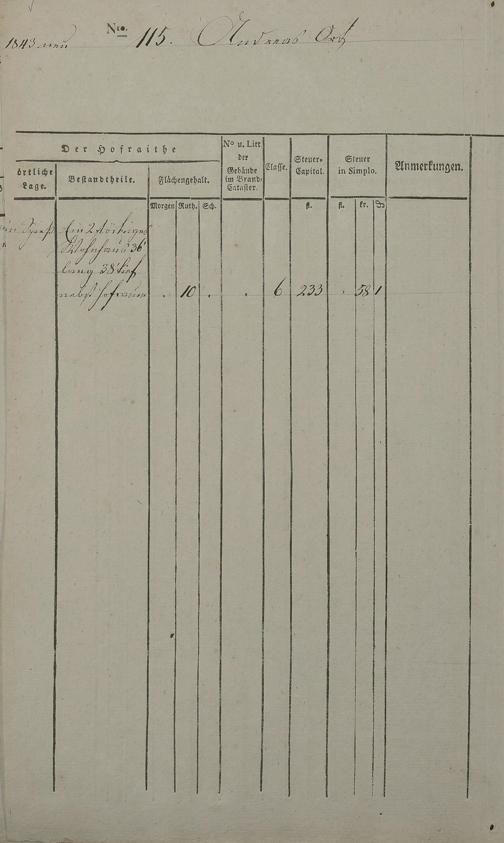 1843 neu Nro. 115. Andreas Ort
Der Hofraithe
örtliche Lage.
Bestandtheile.
Flächengehalt.
Morgen Ruth. Sch.
No u. Litt der Gebäude im Brand-Cataster.
Classe.
Steuer-Capital.
fl.
Steuer in Simplo.
fl. kr. ₰
Anmerkungen.
Ein 2 stöckiges
Wohnhaus 36'
lang 38' tief
nebst Hofraum . 10 . . 6 233 . 58 1